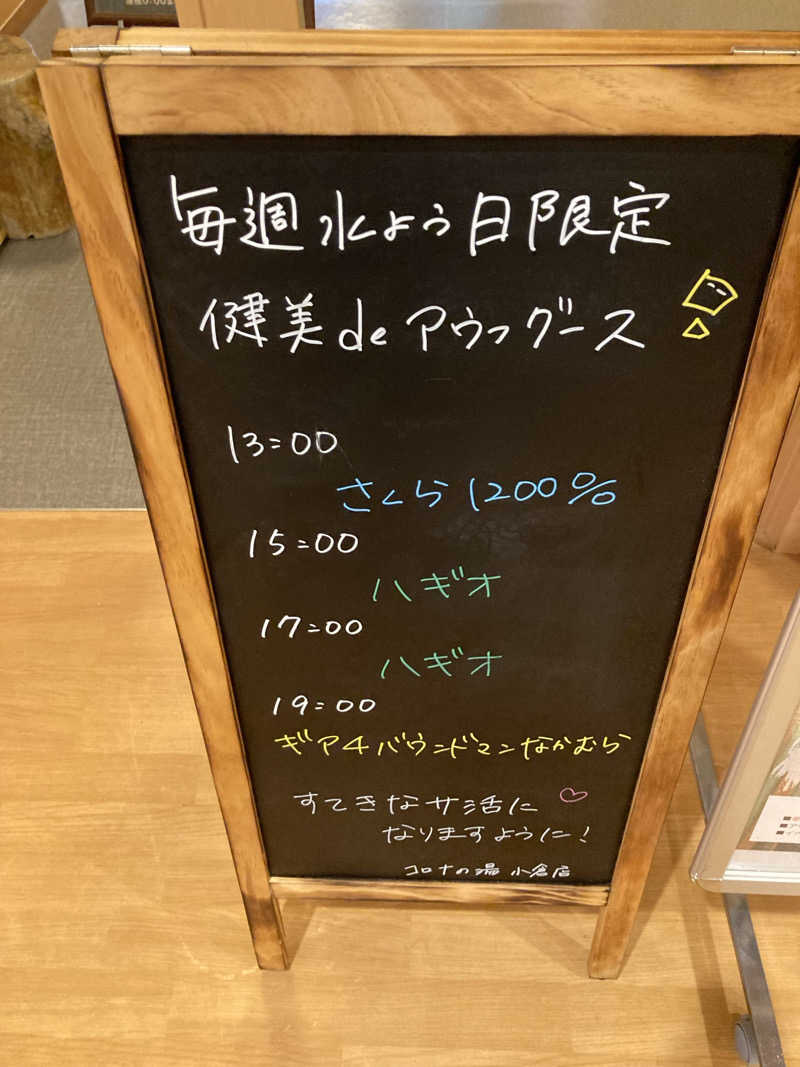 毎週水よう日限定
健美deアウフグース
13:00
さくら1200%
15:00
ハギオ
17:00
ハギオ
19:00
ギア4バウンドマンなかむら
すてきなサ活に
なりますように!
コロナの湯 小倉店